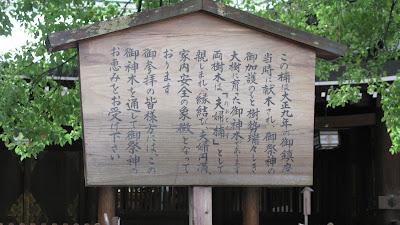 この楠は大正九年の御鎮座
当時に献木され、御祭神の
御加護のもと樹勢瑞々しき
大樹に育った御神木であります
両樹木は、「夫婦楠」として
親しまれ、縁結び、夫婦円満、
家内安全の象徴となって
おります
御参拝の皆様方には、この
御神木を通して御祭神の
お恵みをお受け下さい